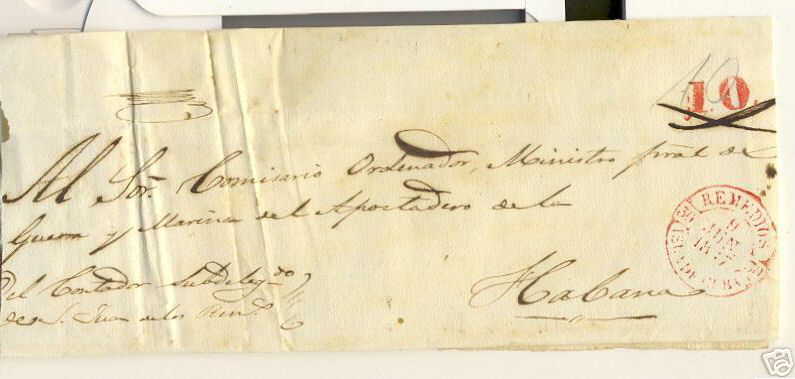 10.
Al Sor. Comisario Ordenador, Ministro pral de
Guerra y Marina del Apostadero de la
Habana
del Contador Subdelegdo
de S. Juan de los Remds
REMEDIOS
9
JUN
1857
ISLA DE CUBA